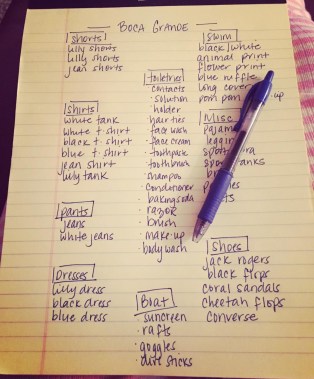 BOCA GRANDE
shorts
lilly shorts
lilly shorts
jean shorts
shirts
white tank
white t-shirt
black t-shirt
blue t-shirt
jean shirt
lilly tank
pants
jeans
white jeans
Dresses
lilly dress
black dress
blue dress
toiletries
· contacts
· solution
· holder
hair ties
· face wash
· face cream
· toothpaste
· toothbrush
· shampoo
· conditioner
· baking soda
· razor
· brush
· make-up
· body wash
Boat
· suncreen
· rafts
· goggles
sticks
swim
black/white
animal print
flower print
blue ruffle
long cover
pom pom up
Misc
pajama
leggin
spo
spo anks
br
p ies
ts
shoes
jack rogers
black flops
coral sandals
cheetah flops
converse